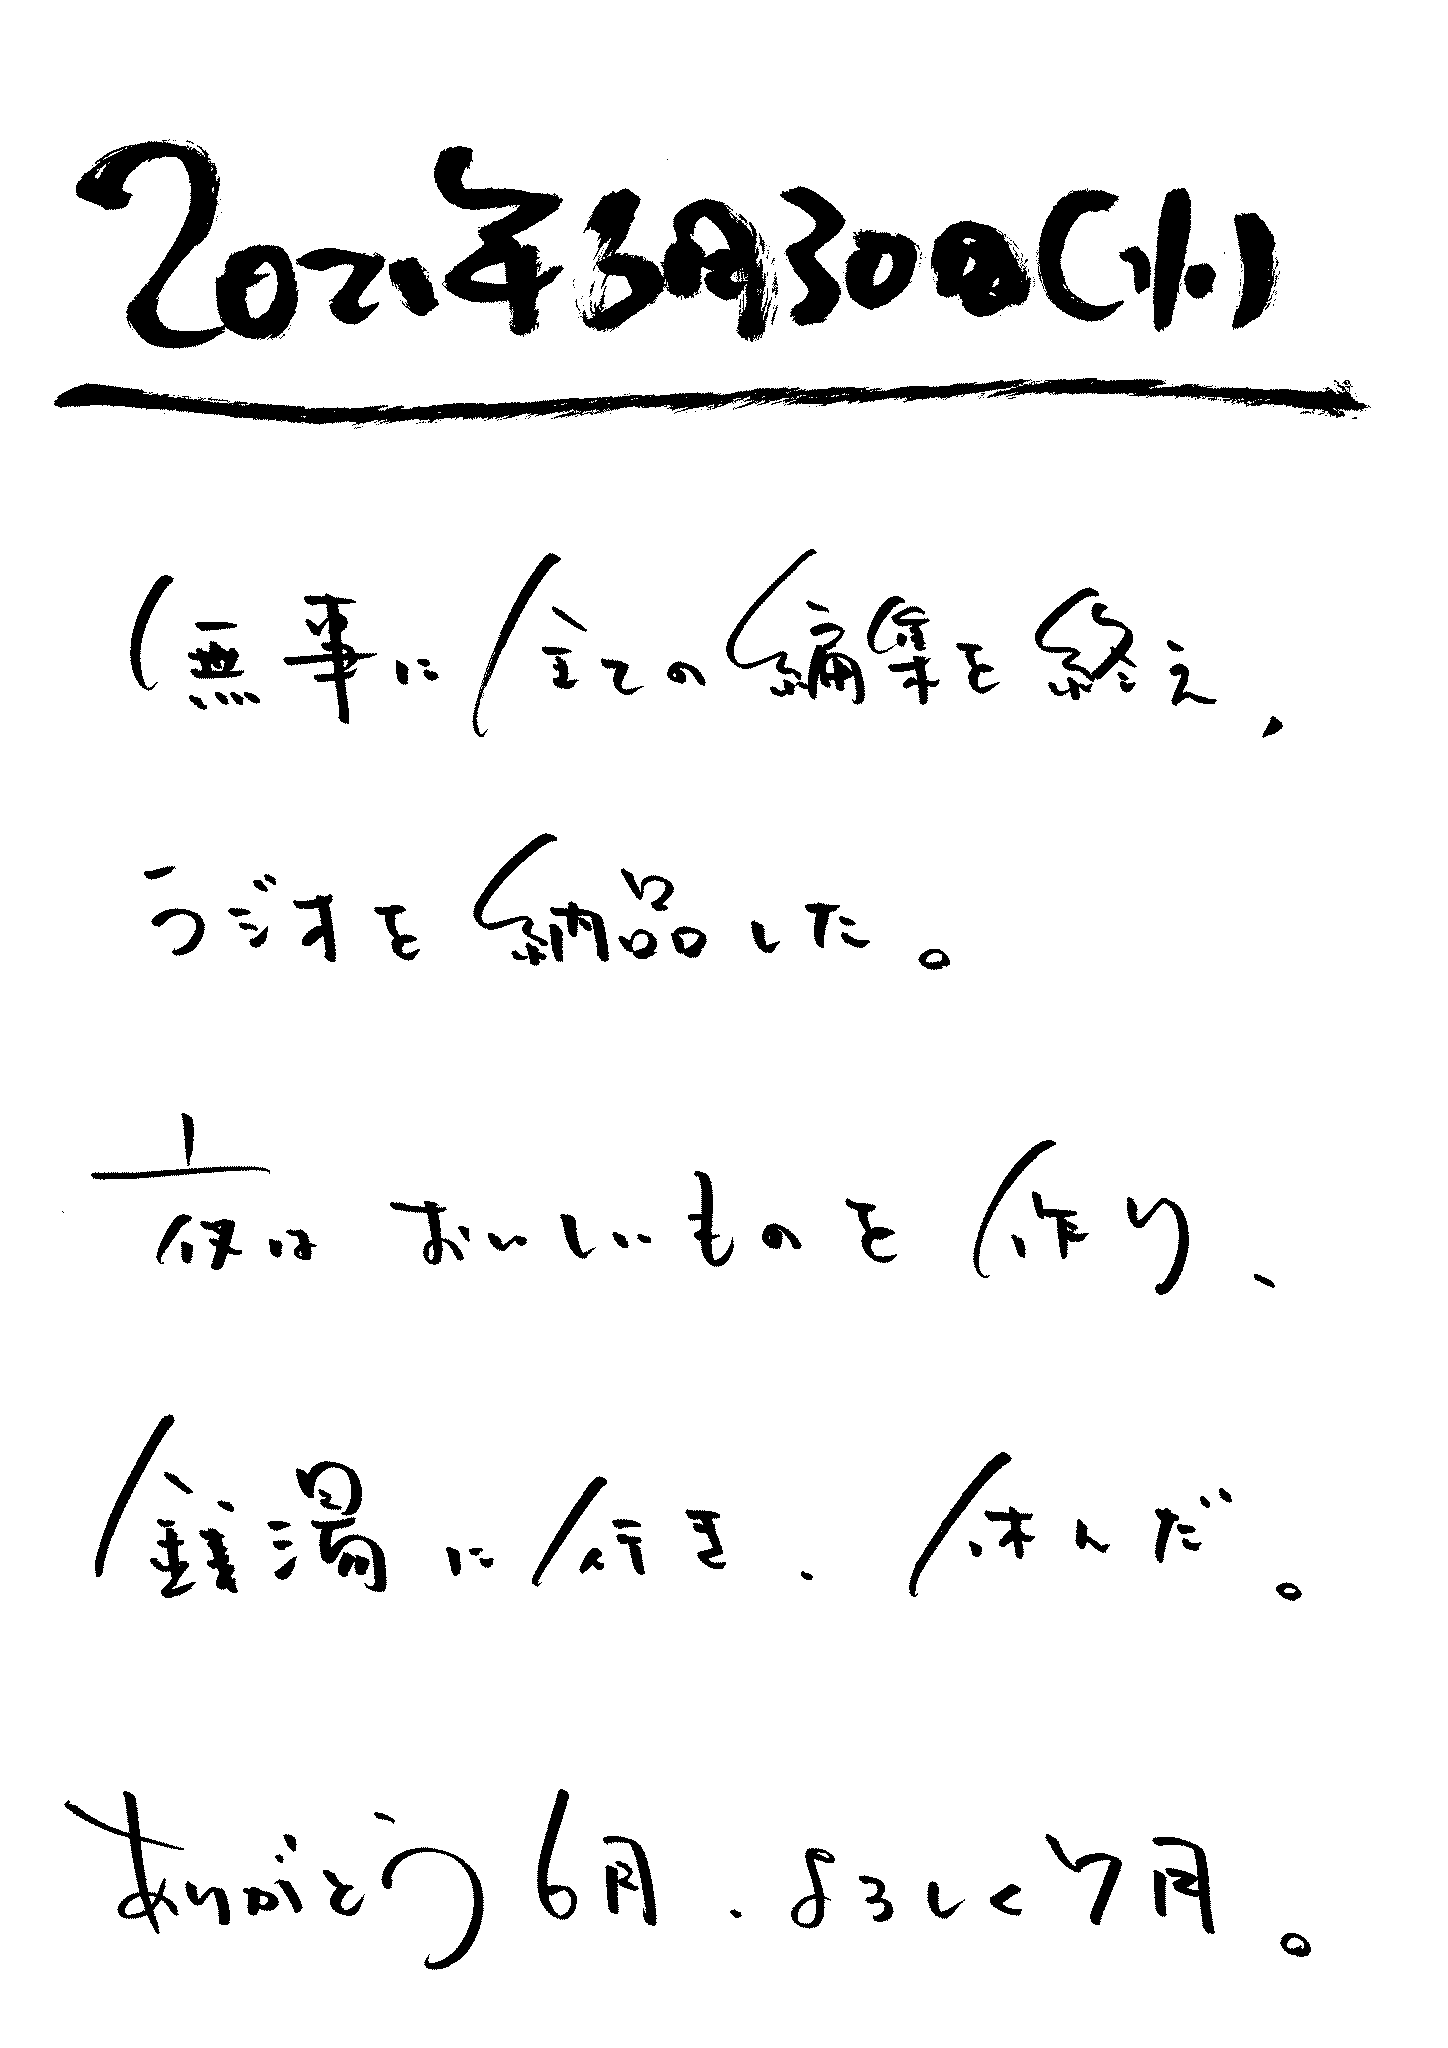 2021年6月30日(水)
無事に全ての編集を終え、
ラジオを納品した。
夜はおいしいものを作り、
銭湯に行き、休んだ。
ありがとう6月、よろしく7月。